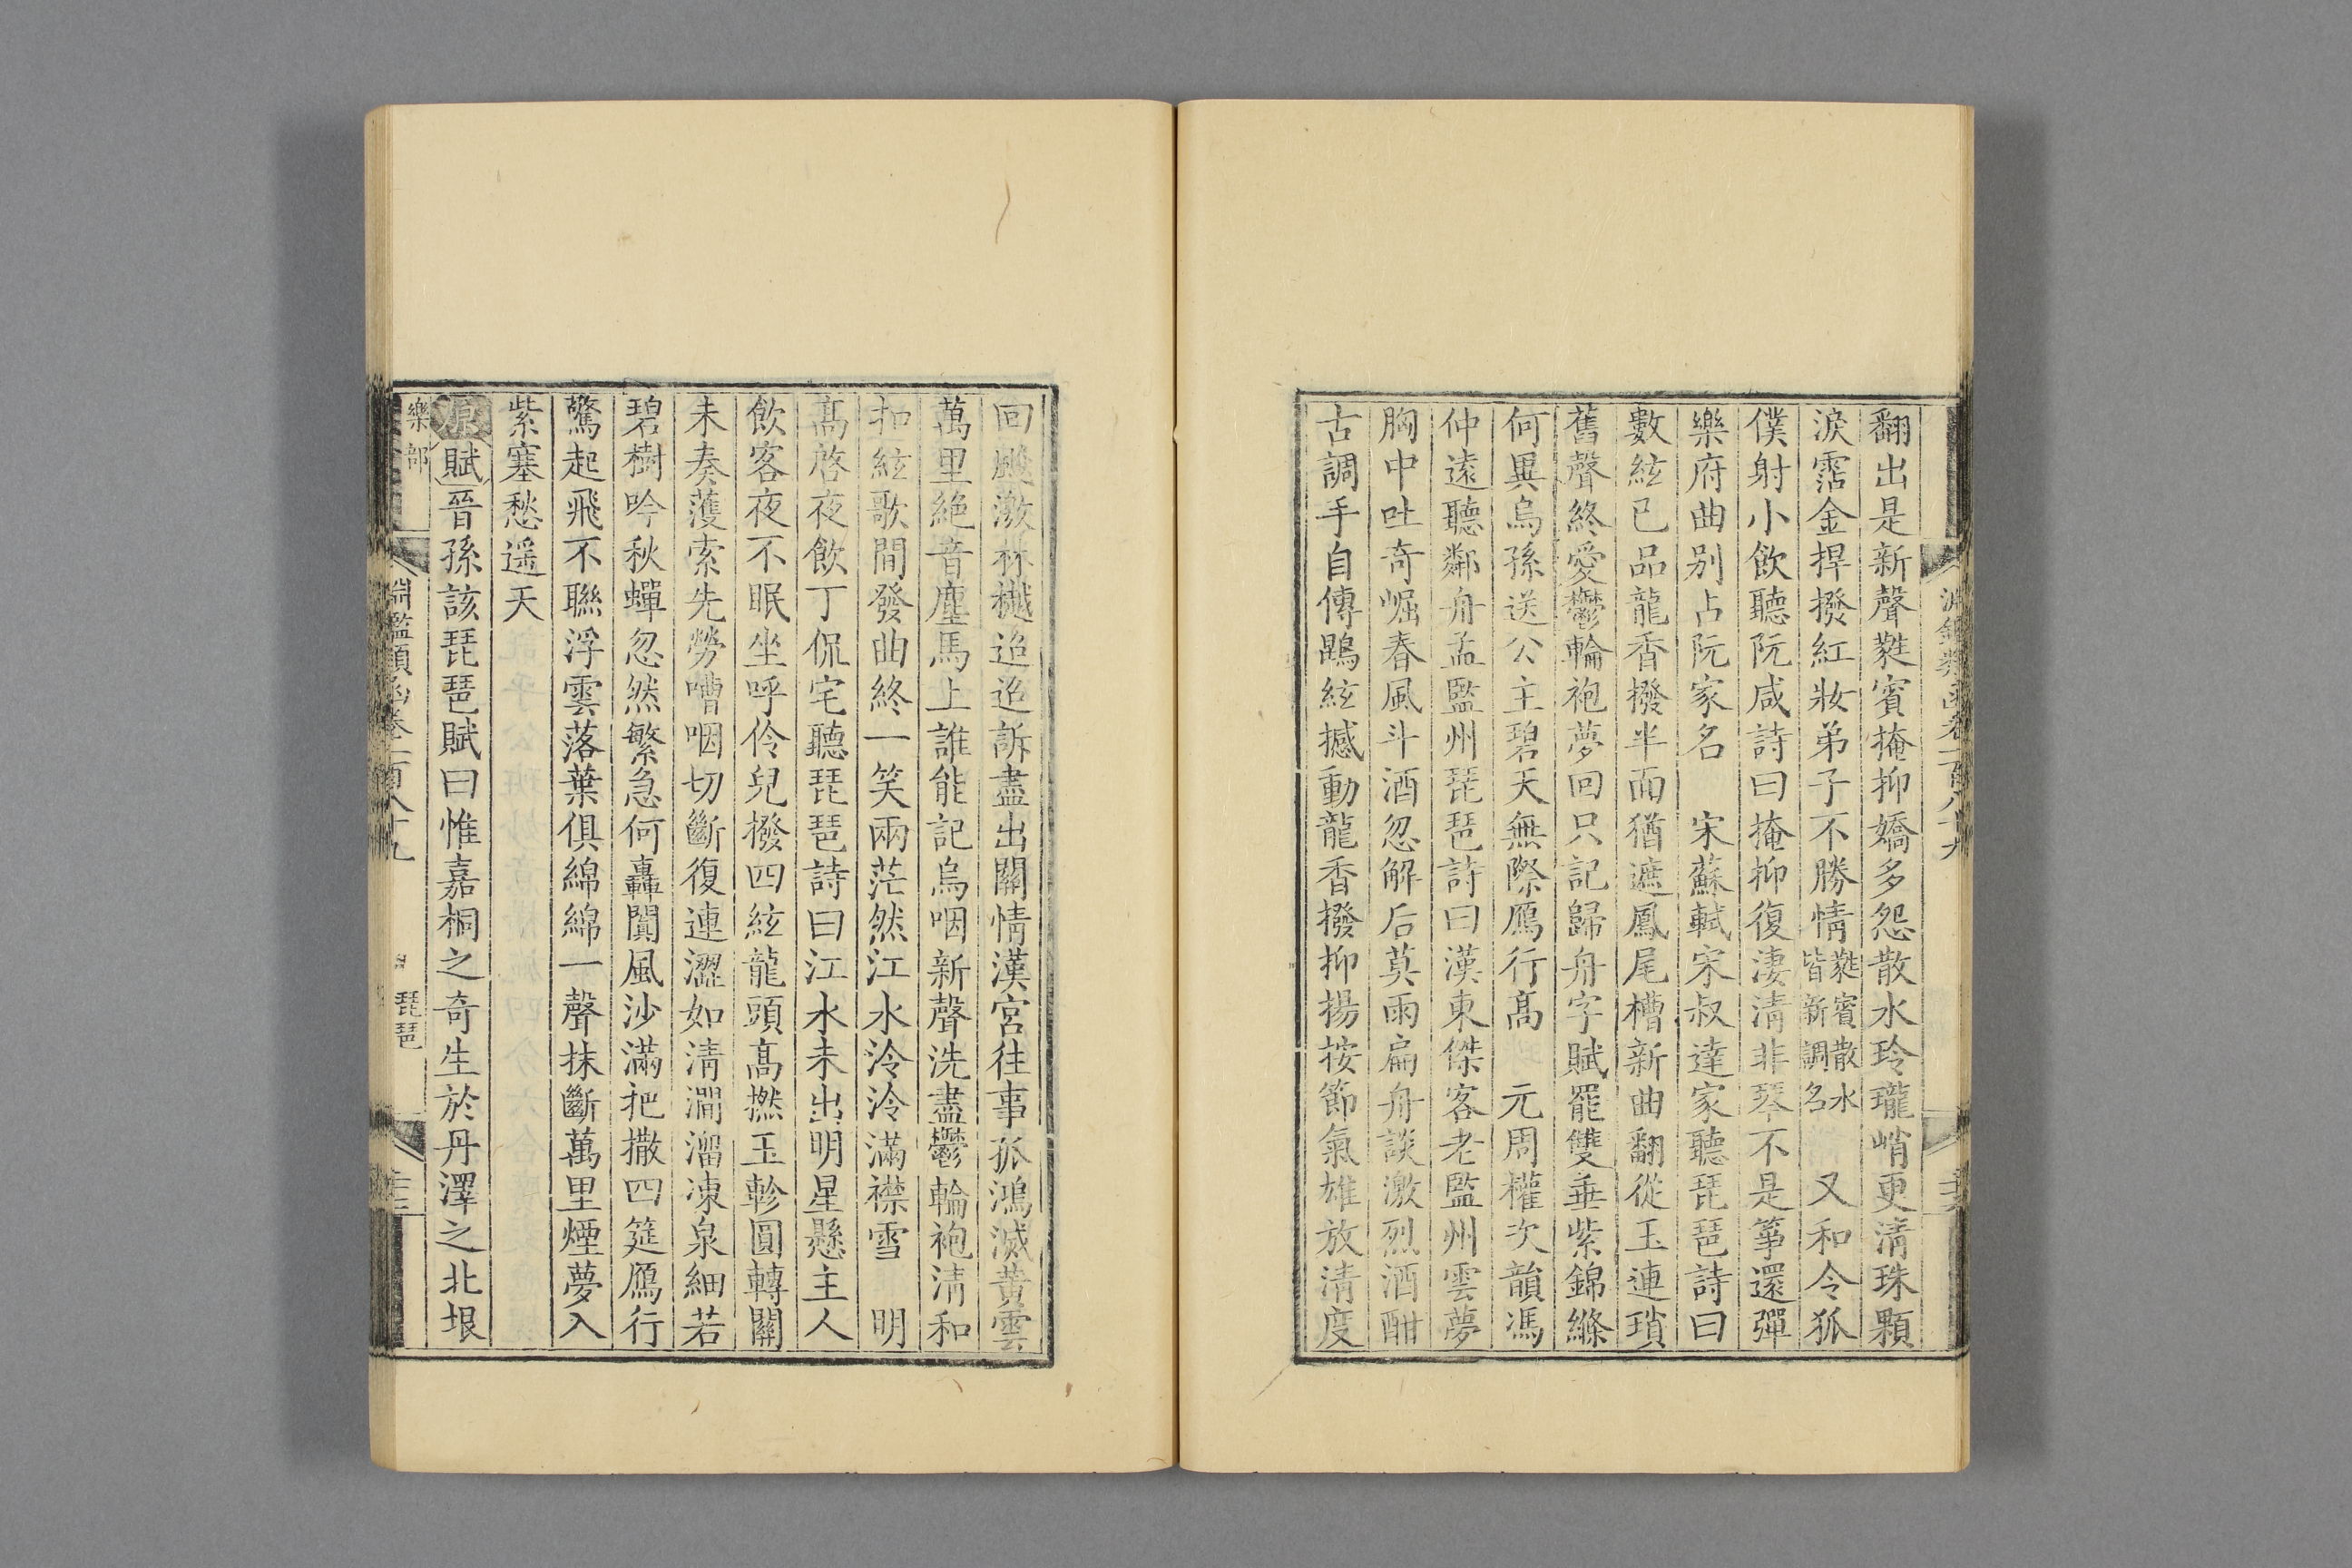 翻出是新聲蕤賓掩抑嬌多怨散水玲瓏峭更清珠顆
淚霑金捍撥紅妝弟子不勝情蕤賓散水皆新調名　又和令狐
僕射小飲聽阮咸詩曰掩抑復淒清非琴不是箏還彈
樂府曲别占阮家名　宋蘇軾宋叔達家聽琵琶詩曰
數絃已品龍香撥半面猶遮鳳尾槽新曲翻從玉連瑣
舊聲終愛鬱輪袍夢回只記歸舟字賦罷雙垂紫錦縧
何異烏孫送公主碧天無際鴈行髙　元周權次韻馮
仲遠聽鄰舟孟監州琵琶詩曰漢東傑客老監州雲夢
胸中吐奇崛春風斗酒忽解后莫雨扁舟談激烈酒酣
古調手自傳鵾絃撼動龍香撥抑揚按節氣雄放清度
回飈激林樾迢迢訴盡出關情漢宮往事孤鴻滅黄雲
萬里絶音塵馬上誰能記烏咽新聲洗盡鬱輪袍清和
扣絃歌間發曲終一笑兩茫然江水泠泠滿襟雪　明
髙啓夜飲丁侃宅聽琵琶詩曰江水未出明星懸主人
飲客夜不眠坐呼伶兒撥四絃龍頭髙撚玉軫圓轉關
未奏濩索先勞嘈咽切斷復連澀如清澗溜凍泉細若
碧樹吟秋蟬忽然繁急何轟闐風沙滿把撒四筵鴈行
驚起飛不聯浮雲落葉俱綿綿一聲抹斷萬里煙夢入
紫塞愁遥天
原賦晉孫該琵琶賦曰惟嘉桐之奇生於丹澤之北垠
樂部　淵鑑類函卷一百八十九　琵琶